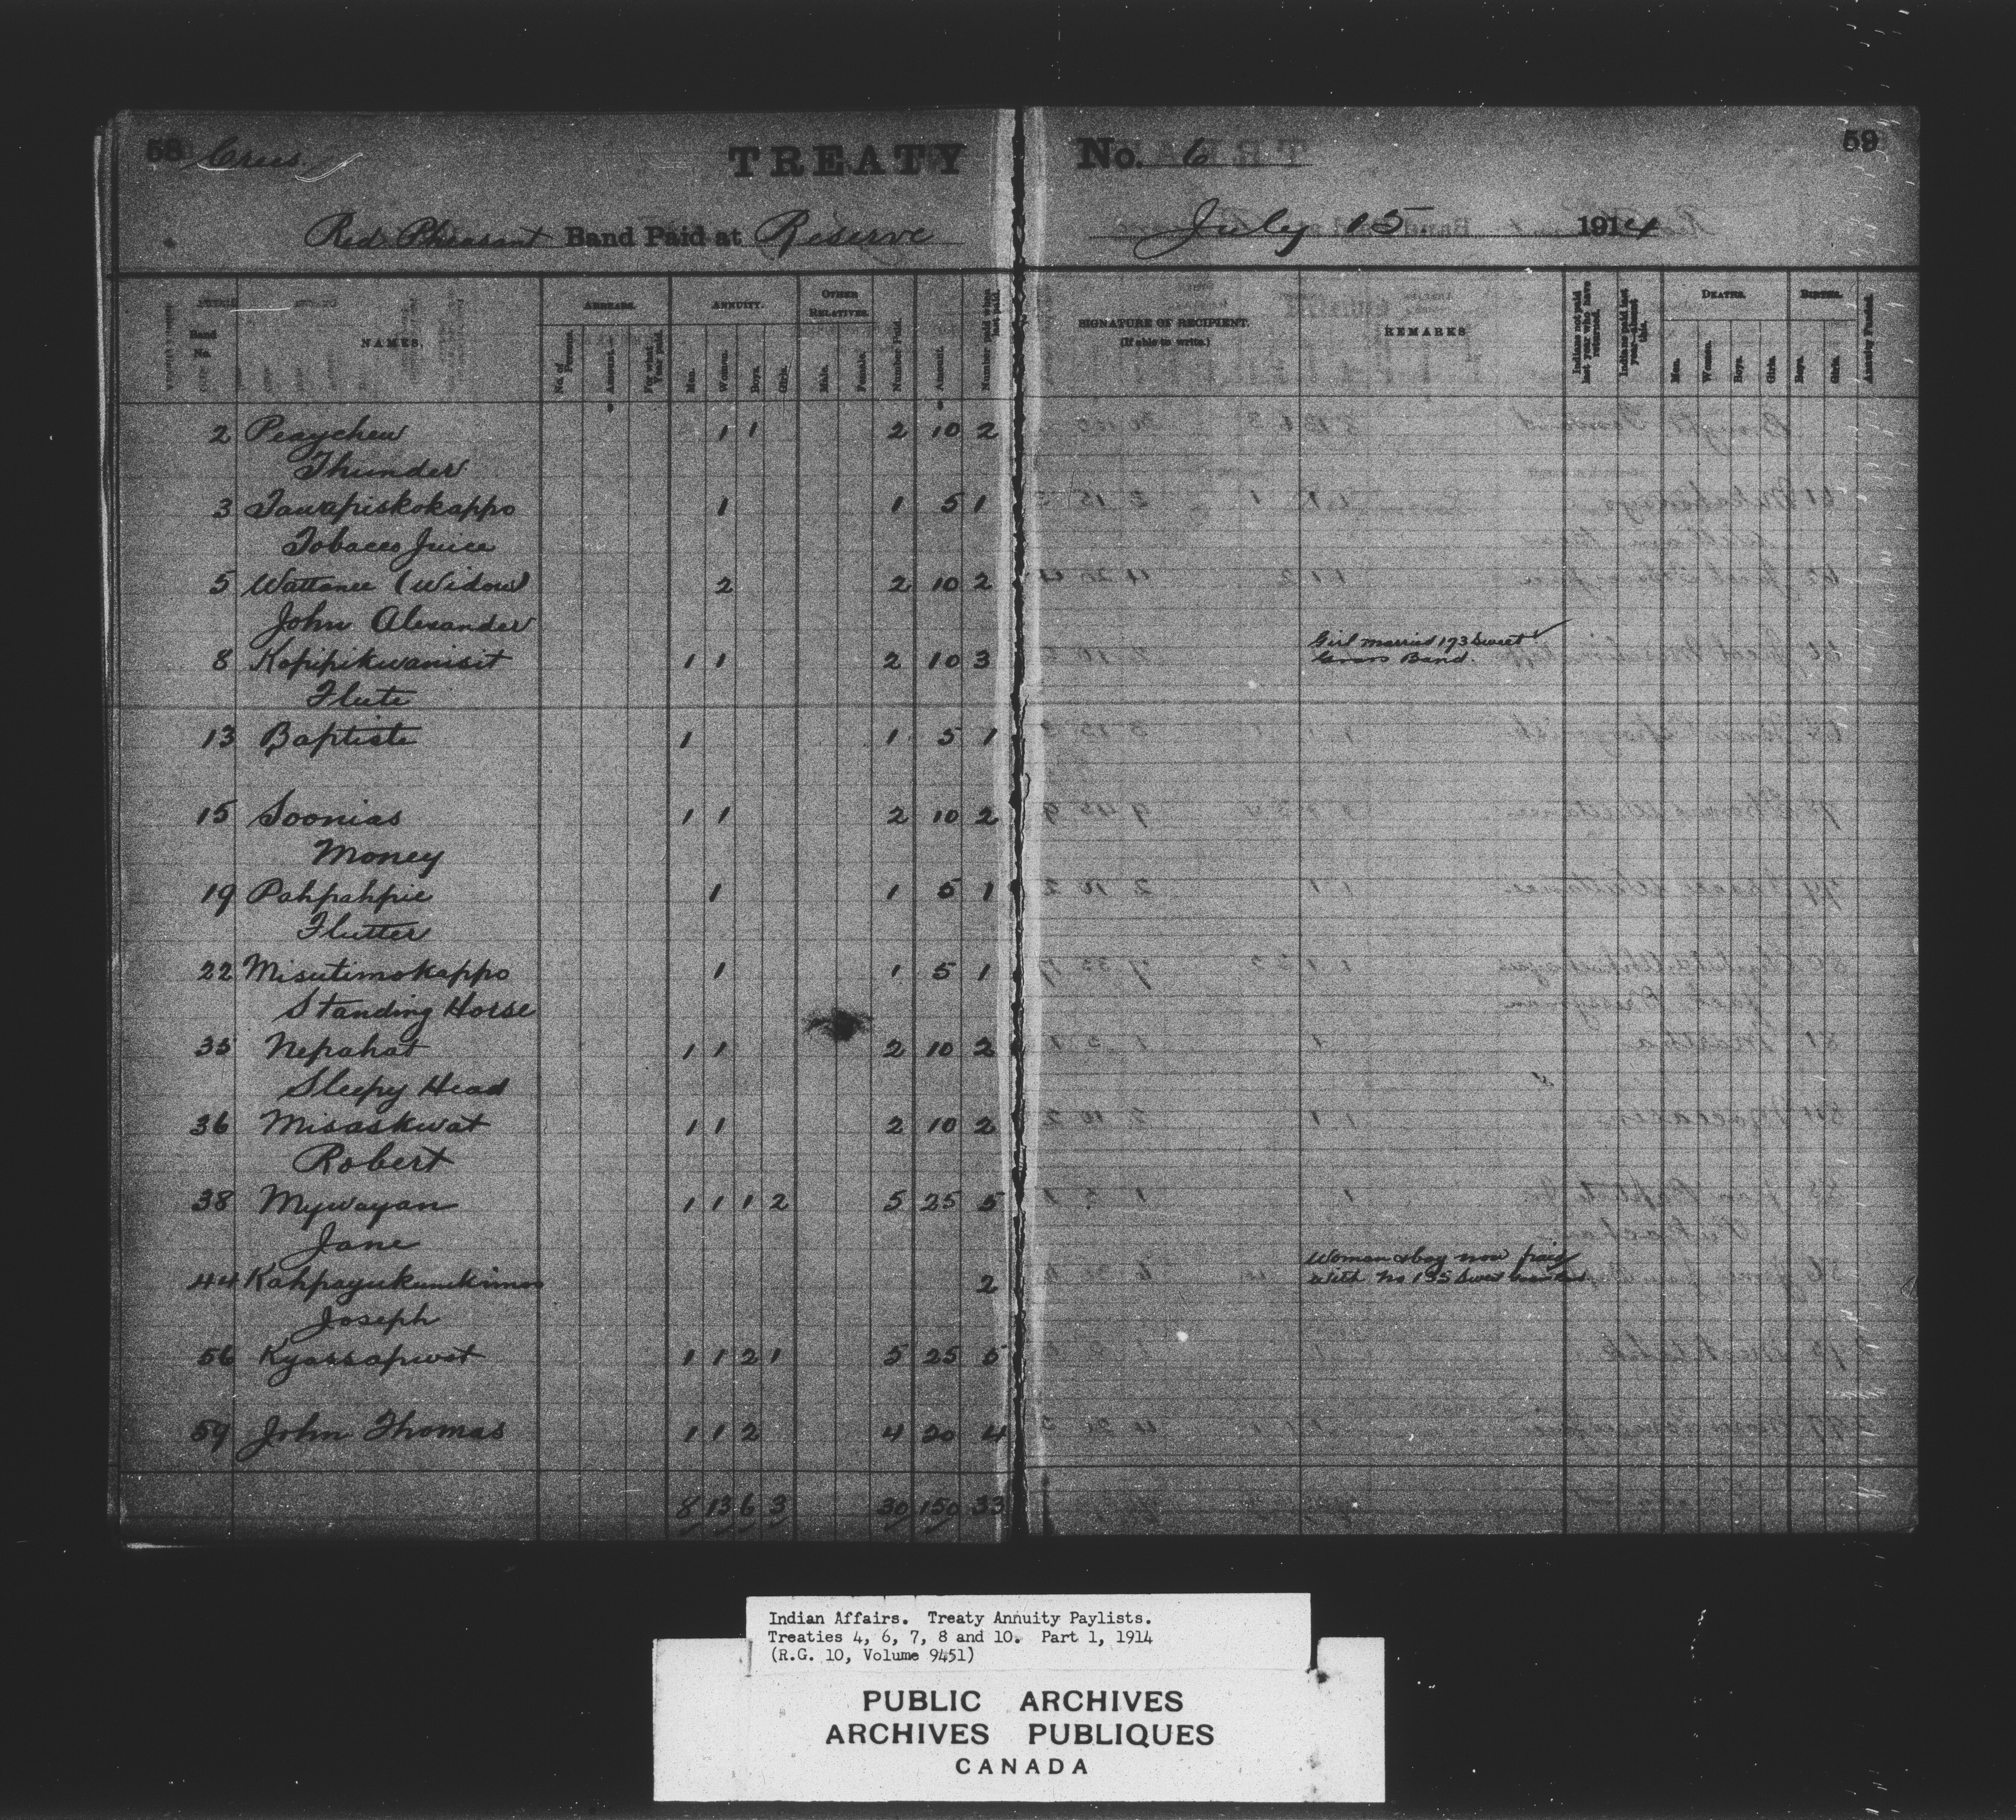 58 Crees. TREATY No. 6 59
Red Pheasant Band Paid at Reserve July 15 1914
Band No. NAMES. ARREARS. No. of Persons. Amount. For what Year paid. ANNUITY. Men. Women. Boys. Girls. OTHER RELATIVES. Male. Female. Number Paid. Amount. Number paid when last paid. SIGNATURE OF RECIPIENT. (If able to write.) REMARKS Indians not paid last year who have returned. Indians paid last year—absent this. DEATHS. Men. Women. Boys. Girls. BIRTHS. Boys. Girls. Annuity Funded.
2 Peaychew 1 1 2 10 2
Thunder
3 Tawapiskokappo 1 1 5 1
Tobacco Juice
5 Wattanee (Widow) 2 2 10 2
John Alexander
Girl married 173 Sweet
8 Kopipikwanisit 1 1 2 10 3 Grass Band.
Flute
13 Baptiste 1 1 5 1
15 Soonias 1 1 2 10 2
Money
19 Pahpahpie 1 1 5 1
Flutter
22 Misutimokappo 1 1 5 1
Standing Horse
35 Nepahat 1 1 2 10 2
Sleepy Head
36 Misaskwat 1 1 2 10 2
Robert
38 Mywayan 1 1 1 2 5 25 5
Jane
Woman & boy now paid
44 Kahpayukumkimos 2 with No 135 Sweet
Joseph
56 Kyassapwot 1 1 2 1 5 25 5
59 John Thomas 1 1 2 4 20 4
8 13 6 3 30 150 33
Indian Affairs. Treaty Annuity Paylists.
Treaties 4, 6, 7, 8 and 10. Part 1, 1914
(R.G. 10, Volume 9451)
PUBLIC ARCHIVES
ARCHIVES PUBLIQUES
CANADA